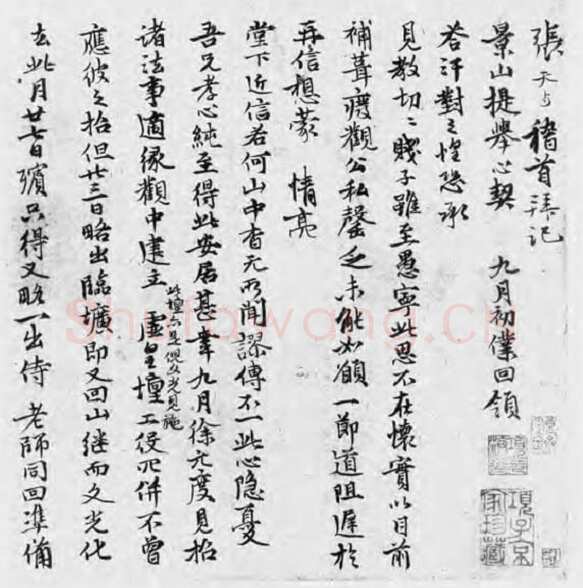 張天雨稽首拜記
景山提舉心契 九月初僕回領
答汗對之惶恐承
見教切々賤子雖至愚寧此思不在懷實以目前
補葺廢觀公私罄乏未能如願一節道阻遲於
再信想蒙 情亮
堂下近信若何山中杳无所聞謬傳不一此心隱憂
吾兄孝心純至得此安居甚幸九月徐元度見招
諸法事適緣觀中建立 虛皇壇工役冗併不曾
此壇亦是倪文光見施
應彼之招但廿三日略出臨壙即又回山繼而文光化
去此月廿七日殯只得又略一出侍 老師同回準備
項子京家珍藏
Shufawang.cn